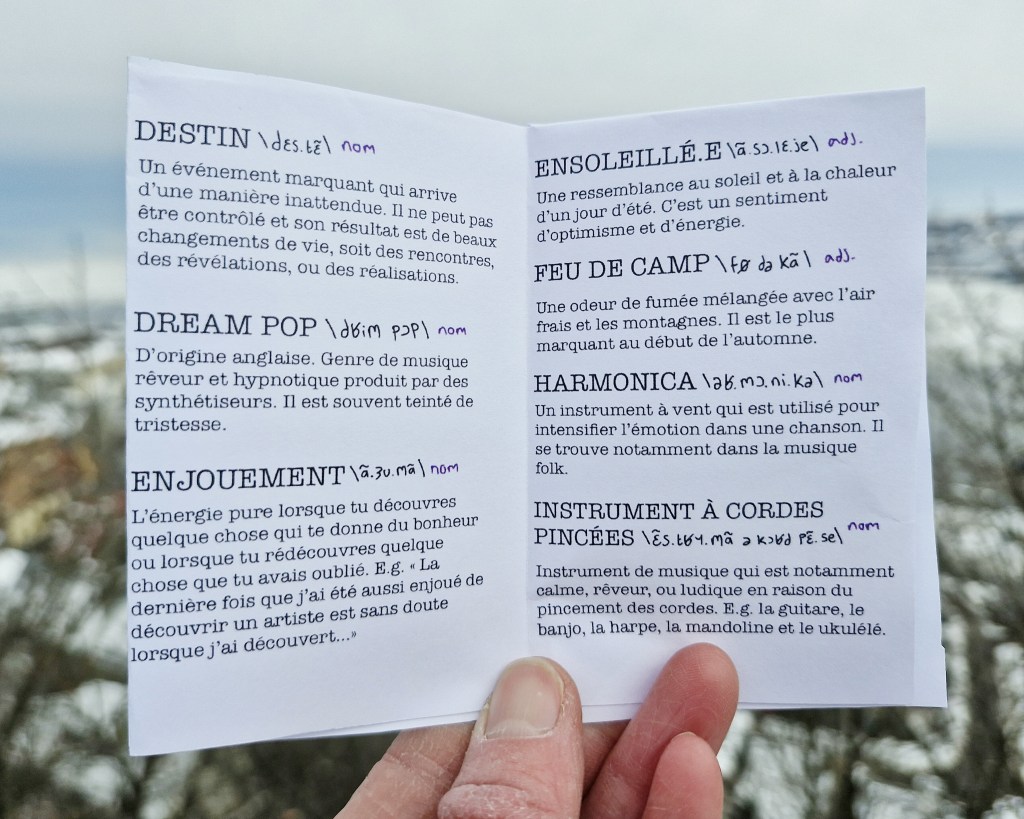 DESTIN \dɛs.tɛ̃\ nom
Un événement marquant qui arrive
d'une manière inattendue. Il ne peut pas
être contrôlé et son résultat est de beaux
changements de vie, soit des rencontres,
des révélations, ou des réalisations.
DREAM POP \dʁim pɔp\ nom
D'origine anglaise. Genre de musique
rêveur et hypnotique produit par des
synthétiseurs. Il est souvent teinté de
tristesse.
ENJOUEMENT \ã.ʒu.mã\ nom
L'énergie pure lorsque tu découvres
quelque chose qui te donne du bonheur
ou lorsque tu rédécouvres quelque
chose que tu avais oublié. E.g. « La
dernière fois que j'ai été aussi enjoué de
découvrir un artiste est sans doute
lorsque j'ai découvert...»
ENSOLEILLÉ.E \ã.sɔ.lɛ.je\ adj.
Une ressemblance au soleil et à la chaleur
d'un jour d'été. C'est un sentiment
d'optimisme et d'énergie.
FEU DE CAMP \fø də kã\ adj.
Une odeur de fumée mélangée avec l'air
frais et les montagnes. Il est le plus
marquant au début de l'automne.
HARMONICA \aʁ.mɔ.ni.ka\ nom
Un instrument à vent qui est utilisé pour
intensifier l'émotion dans une chanson. Il
se trouve notamment dans la musique
folk.
INSTRUMENT À CORDES
PINCÉES \ɛ̃s.tʁy.mã a kɔʁd pɛ̃.se\ nom
Instrument de musique qui est notamment
calme, rêveur, ou ludique en raison du
pincement des cordes. E.g. la guitare, le
banjo, la harpe, la mandoline et le ukulélé.